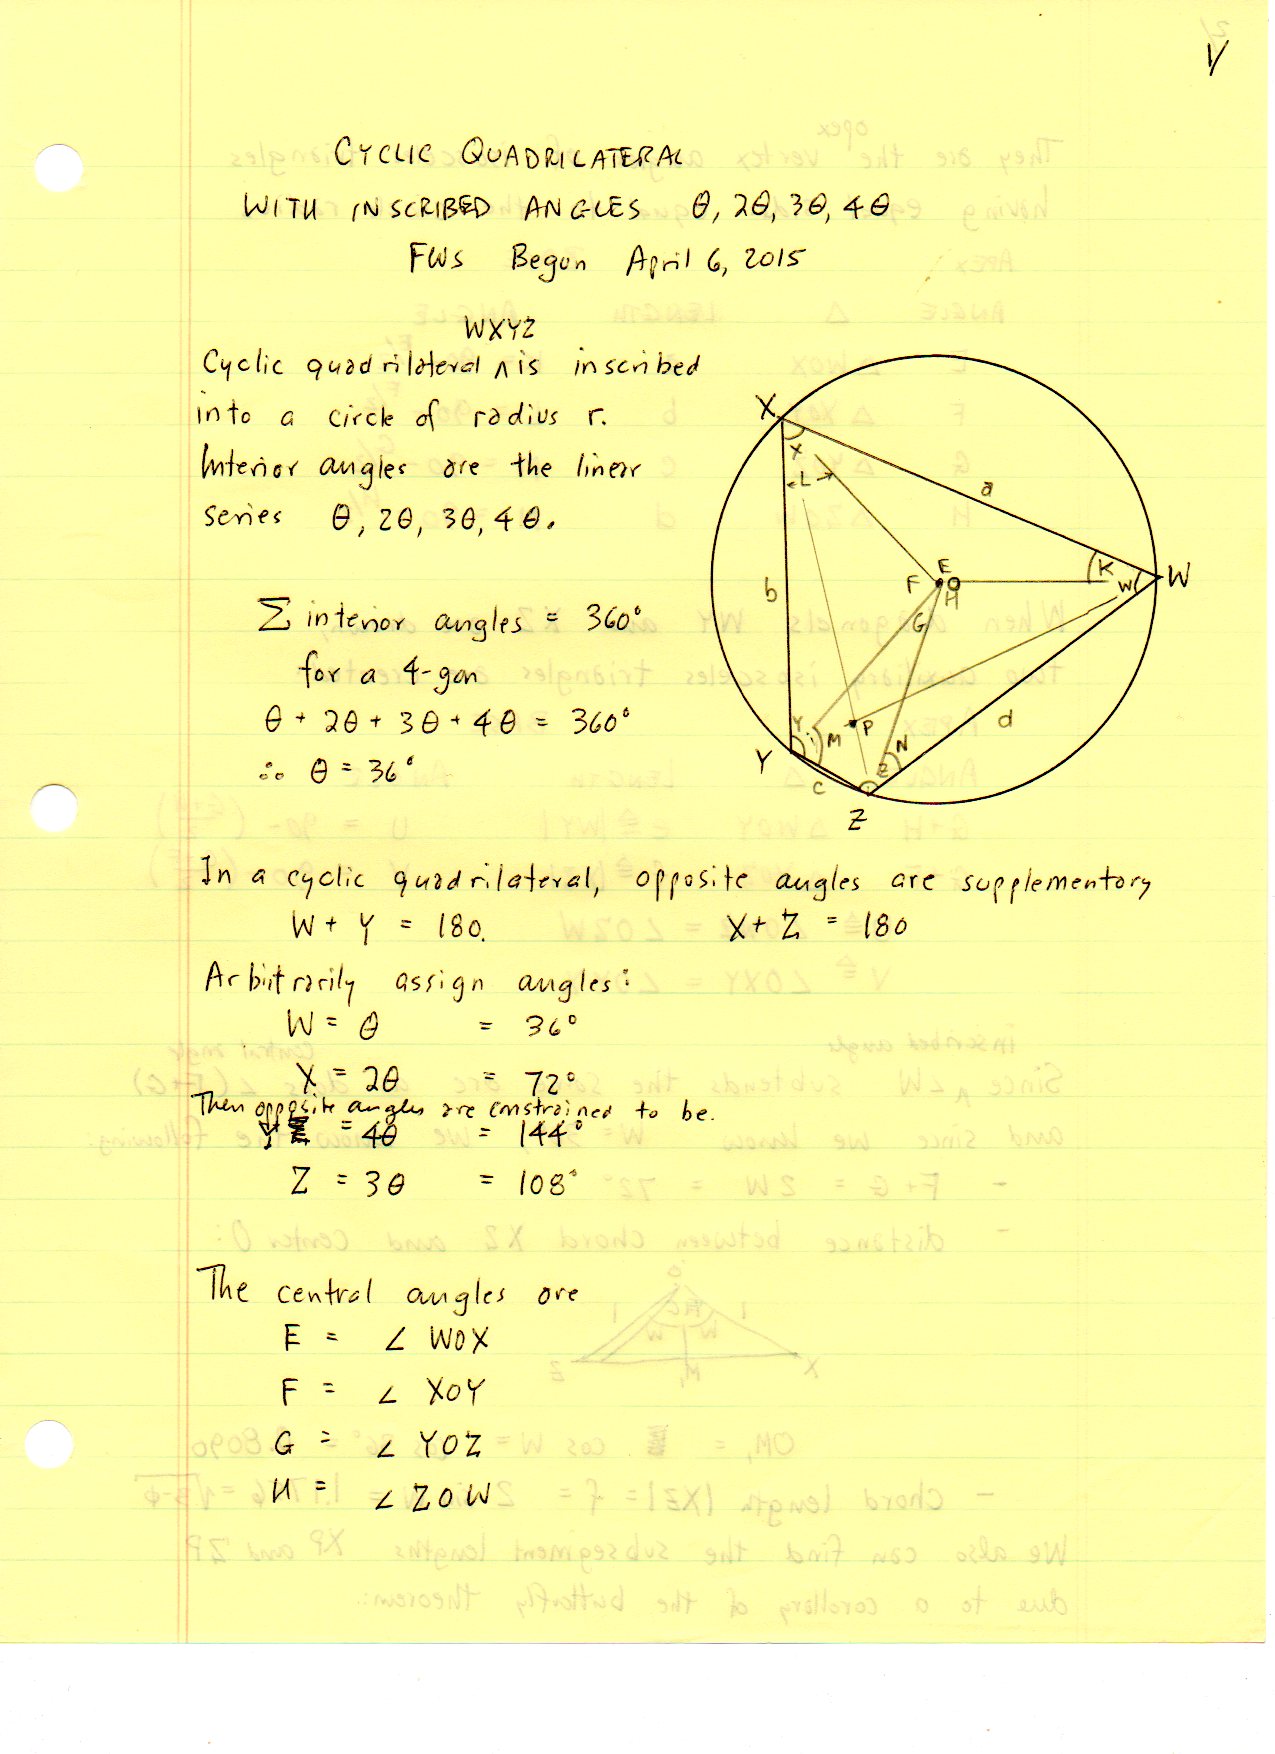 1/
CYCLIC QUADRILATERAL
WITH INSCRIBED ANGLES θ, 2θ, 3θ, 4θ
FWS Begun April 6, 2015
WXYZ
Cyclic quadrilateral ∧ is inscribed
into a circle of radius r.
Interior angles are the linear
series θ, 2θ, 3θ, 4θ.
Σ interior angles = 360°
for a 4-gon
θ + 2θ + 3θ + 4θ = 360°
∴ θ = 36°
X
X
L
a
E
K
W
W
F
O
H
b
G
Y
M
P
d
N
Y
Z
C
Z
In a cyclic quadrilateral, opposite angles are supplementary
W + Y = 180. X + Z = 180
Arbitrarily assign angles:
W = θ = 36°
X = 2θ = 72°
Then opposite angles are constrained to be.
Y = 4θ = 144°
Z = 3θ = 108°
The central angles are
E = ∠ WOX
F = ∠ XOY
G = ∠ YOZ
H = ∠ ZOW